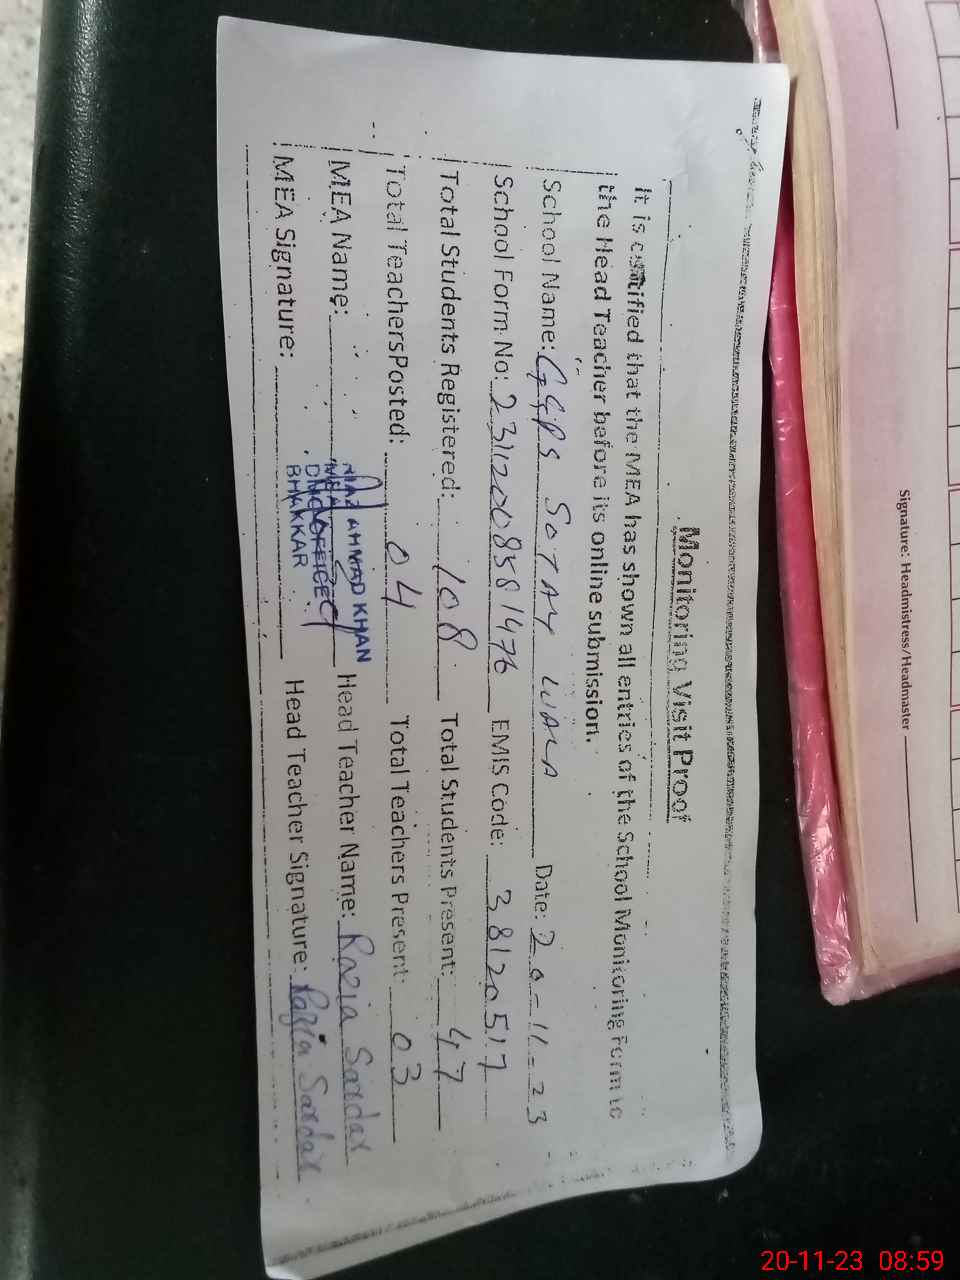 Monitoring Visit Proof
It is certified that the MEA has shown all entries of the School Monitoring Form to
the Head Teacher before its online submission.
School Name: GGPS SOTAY WALA Date: 20-11-23
School Form No: 23112008581476 EMIS Code: 38120517
Total Students Registered: 108 Total Students Present: 47
Total TeachersPosted: 04 Total Teachers Present: 03
MEA Name: Head Teacher Name: Razia Sardar
MEA Signature: Head Teacher Signature: Razia Sardar
NIAZ AHMAD KHAN
MEA
DMO OFFICE
BHAKKAR
Signature: Headmistress/Headmaster
20-11-23 08:59